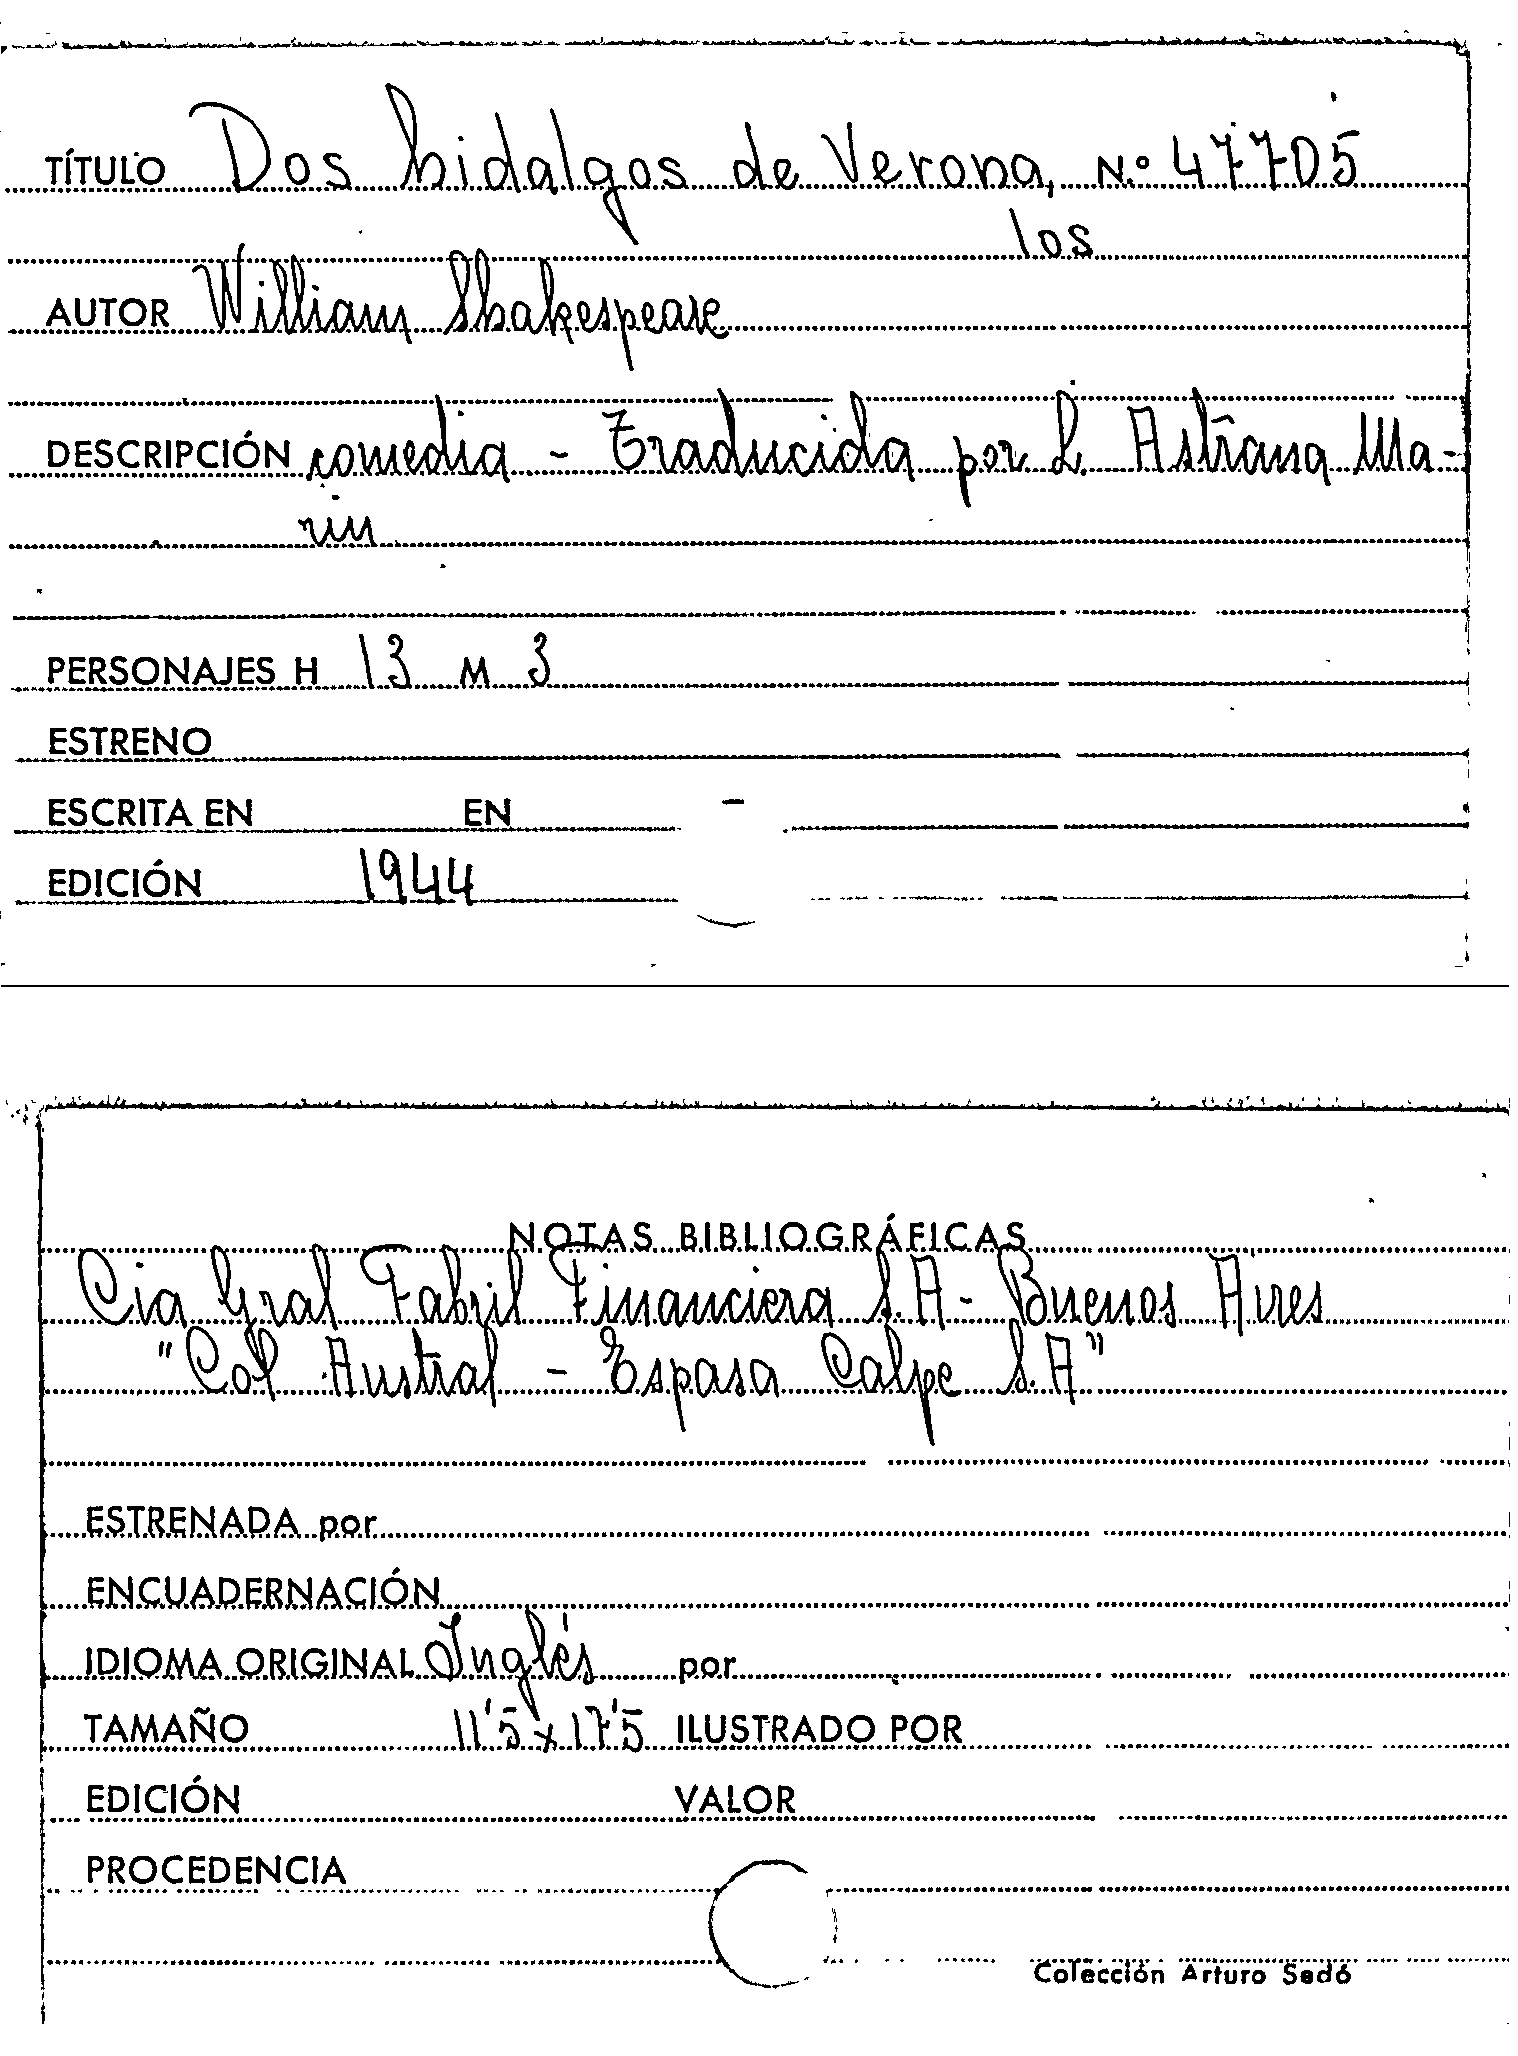 TÍTULO Dos hidalgos de Verona, N.º 47705
los
AUTOR William Shakespeare
DESCRIPCIÓN comedia - Traducida por L. Astrana Ma-
rin
PERSONAJES H 13 M 3
ESTRENO
ESCRITA EN EN
EDICIÓN 1944
NOTAS BIBLIOGRÁFICAS
Cia Gral Fabril Financiera S.A - Buenos Aires
"Col Austral - Espasa Calpe S.A"
ESTRENADA por
ENCUADERNACIÓN
IDIOMA ORIGINAL Inglés por
TAMAÑO 11'5 x 17'5 ILUSTRADO POR
EDICIÓN VALOR
PROCEDENCIA
Colección Arturo Sedó